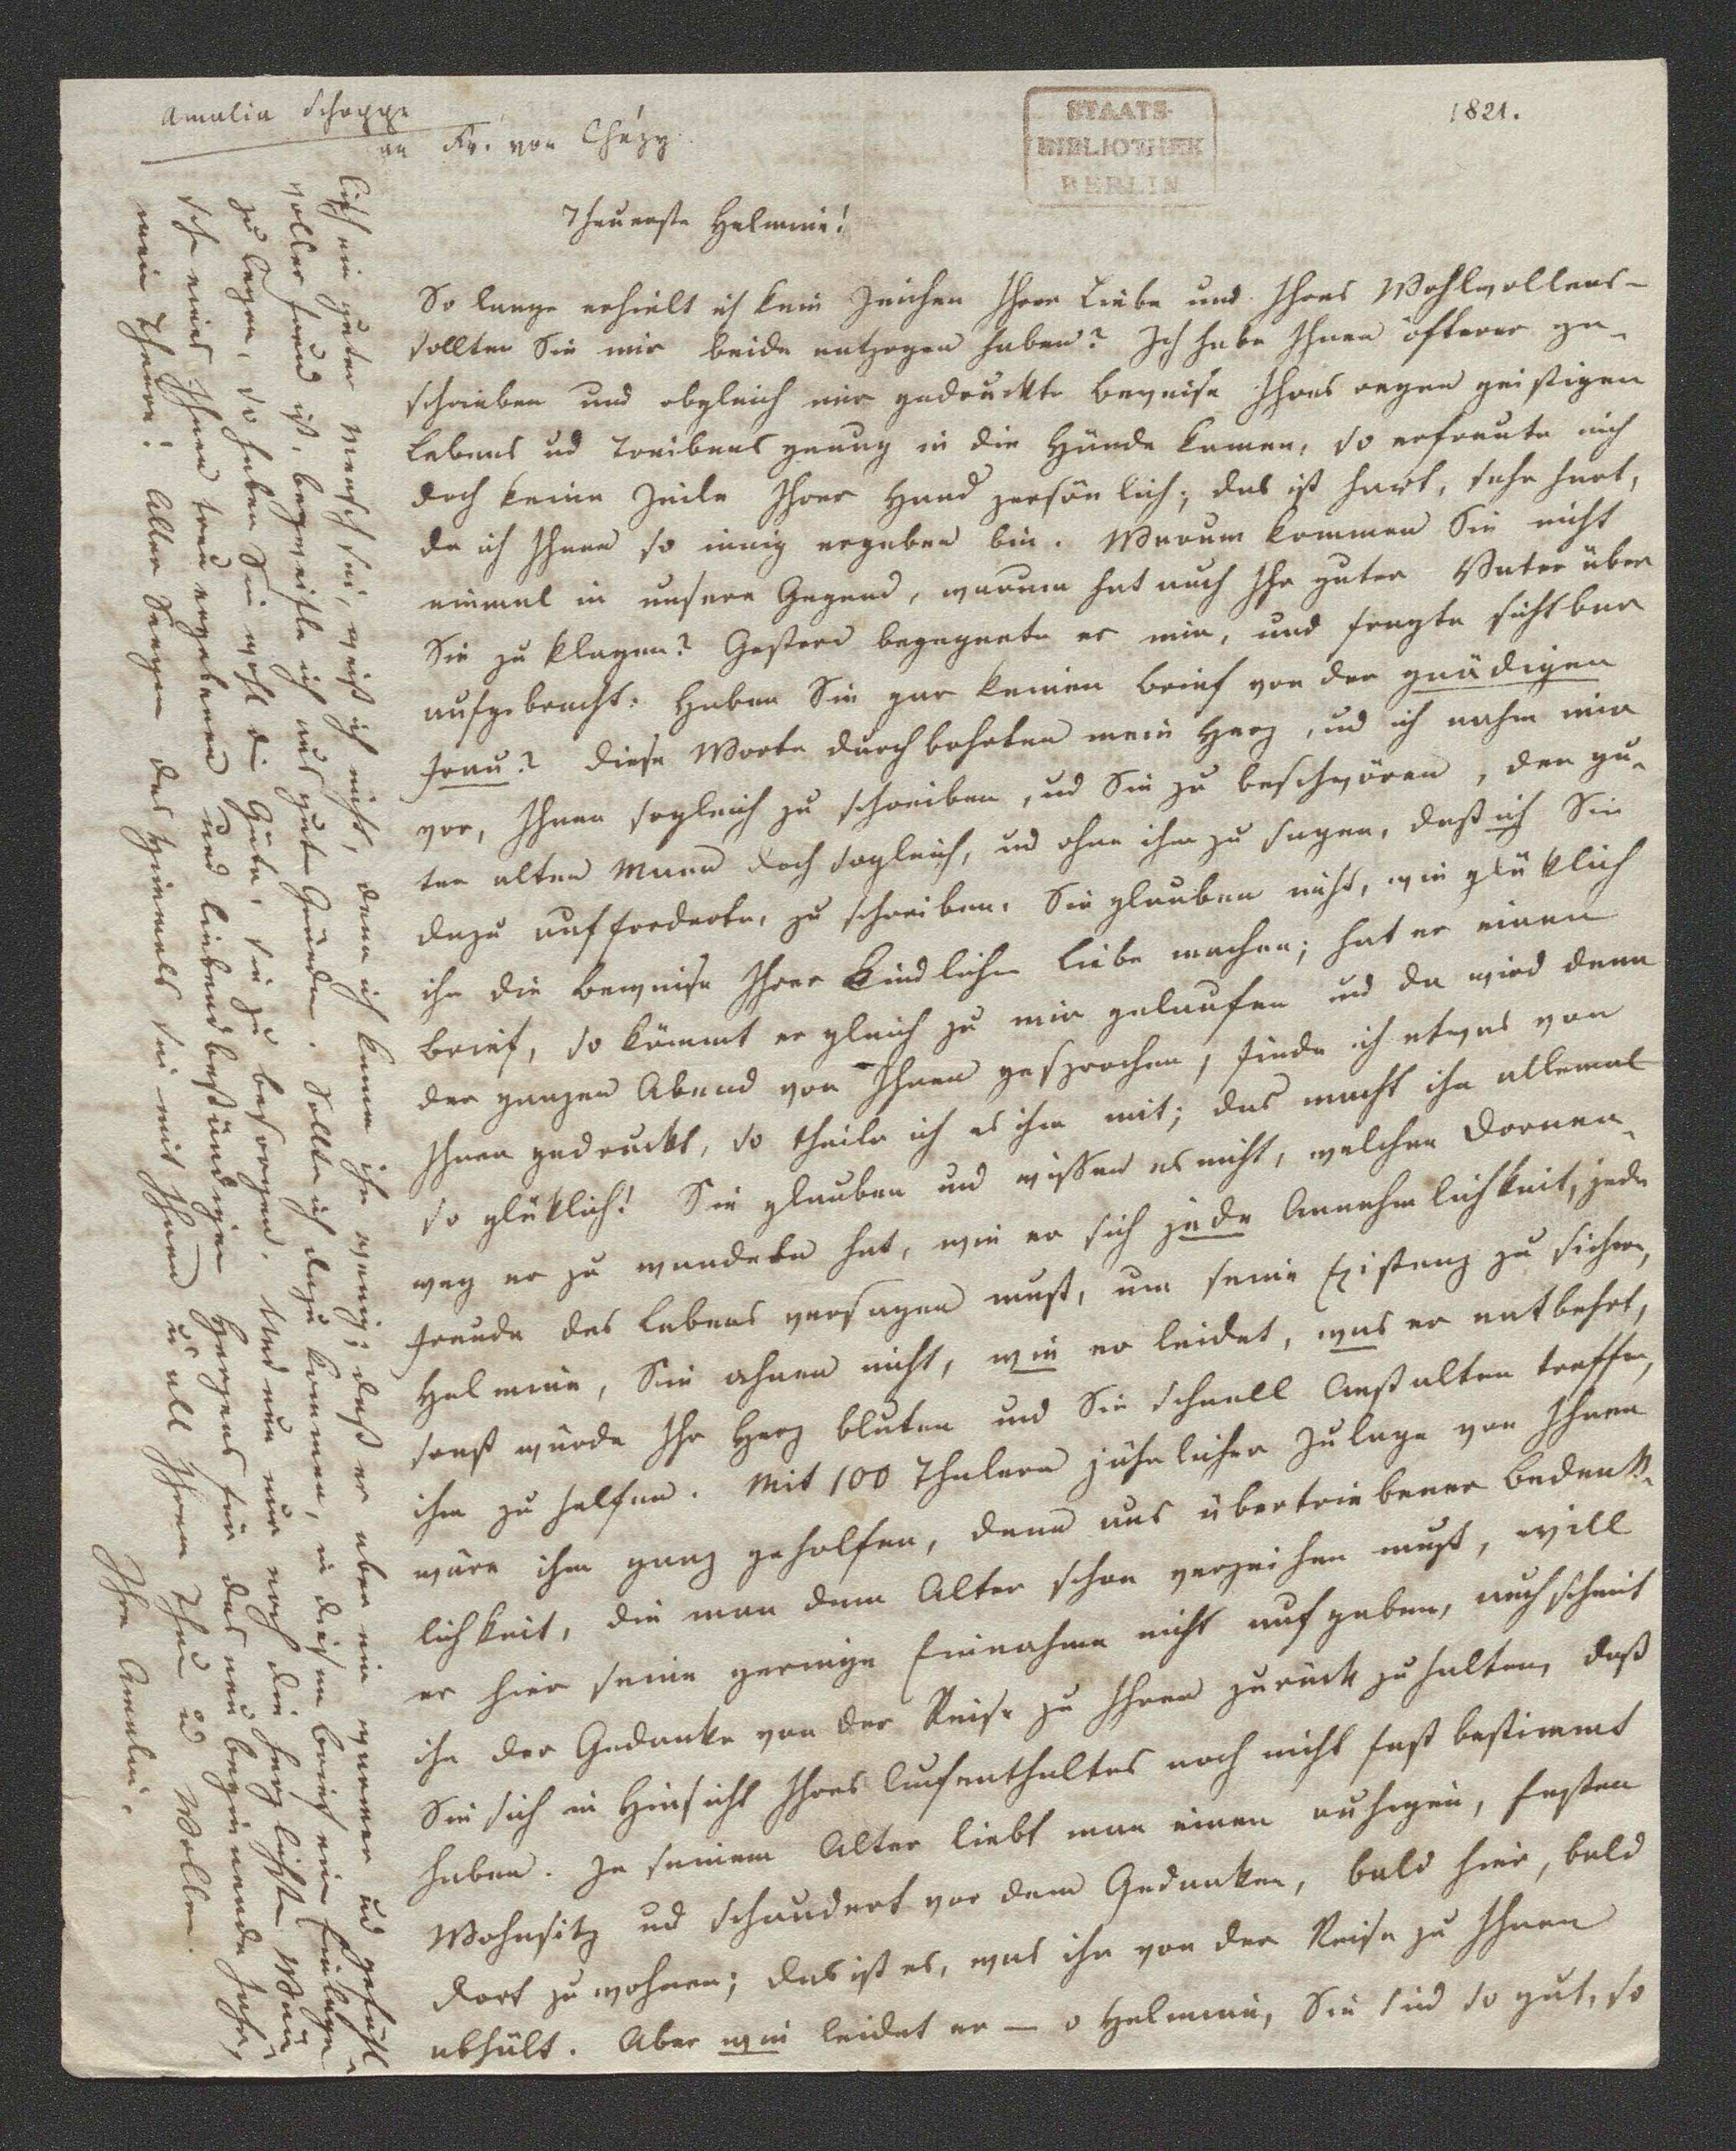 Amalia Schoppe
an Fr. von Chézy.
STAATS-
BIBLIOTHEK
BERLIN
1821.
Theuerste Helmine!
So lange erhielt ich kein Zeichen Ihrer Liebe und Ihres Wohlwollens –
sollten Sie mir beide entzogen haben? Ich habe Ihnen öfterer ge-
schrieben und obgleich mir gedruckte Beweise Ihres regen geistigen
Lebens ud Treibens genug in die Hände kamen, so erfreute mich
doch keine Zeile Ihrer Hand persönlich; das ist hart, sehr hart,
da ich Ihnen so innig ergeben bin. Warum kommen Sie nicht
einmal in unsere Gegend, warum hat auch Ihr guter Vater über
Sie zu klagen? Gestern begegnete er mir, und fragte sichtbar
aufgebracht: Haben Sie gar keinen Brief von der gnädigen
Frau? Diese Worte durchbohrten mein Herz, ud ich nahm mir
vor, Ihnen sogleich zu schreiben, ud Sie zu beschwören, den gu-
ten alten Mann doch sogleich, ud ohne ihm zu sagen, daß ich Sie
dazu aufforderte, zu schreiben. Sie glauben nicht, wie glüklich
ihn die Beweise Ihrer kindlichen Liebe machen; hat er einen
Brief, so kömmt er gleich zu mir gelaufen ud da wird denn
den ganzen Abend von Ihnen gesprochen, finde ich etwas von
Ihnen gedruckt, so theile ich es ihm mit; das macht ihn allemal
so glüklich! Sie glauben und wissen es nicht, welchen Dornen-
weg er zu wandeln hat, wie er sich jede Annehmlichkeit, jede
Freude des Lebens versagen muß, um seine Existenz zu sichern,
Helmine, Sie ahnen nicht, wie er leidet, was er entbehrt,
sonst würde Ihr Herz bluten und Sie schnell Anstalten treffen,
ihm zu helfen. Mit 100 Thalern jährlicher Zulage von Ihnen
wäre ihm ganz geholfen, denn aus übertriebener Bedenk-
lichkeit, die man dem Alter schon verzeihen muß, will
er hier seine geringe Einnahme nicht aufgeben, auch scheint
ihn der Gedanke von der Reise zu Ihnen zurück zu halten, daß
Sie sich in Hinsicht Ihres Aufenthaltes noch nicht fest bestimmt
haben. In seinem Alter liebt man einen ruhigen, festen
Wohnsitz ud schaudert vor dem Gedanken, bald hier, bald
dort zu wohnen; das ist es, was ihn von der Reise zu Ihnen
abhält. Aber wie leidet er – o Helmine, Sie sind so gut, so
lich ein guter Mensch sei, weiß ich nicht, denn ich kenne ihn wenig; daß er aber ein warmer ud gefühl-
voller Freund ist, bezweifle ich aus guten Gründen. Sollte ich dazu kommen, in diesen Brief eine Einlage
zu legen, so haben Sie wohl die Güte, sie zu besorgen. Und nun nur noch die herzlichsten Wün-
sche eines Ihnen treu ergebenen und liebend beständigen Herzens für das neu beginnende Jahr,
mein Theure! Aller Seegen des Himmels sei mit Ihnen u all Ihrem Thun u Wollen.
Ihre Amalie.